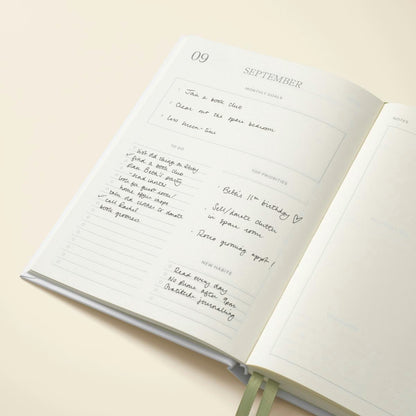 09
SEPTEMBER
MONTHLY GOALS
Join a book club
Clear out the spare bedroom
Less screen-time
TO DO
list old thing on
find a book club
plan Beth's party
- send invites
look for guest room /
home office
old clothes to donate
call Rachel
book
TOP PRIORITIES
Beth's 11th birthday ♡
Sell/donate clutter
in spare room
Rosie grooming appt!
NEW HABITS
Read every day
No Phone after 9pm
Gratitude journaling
NOTES